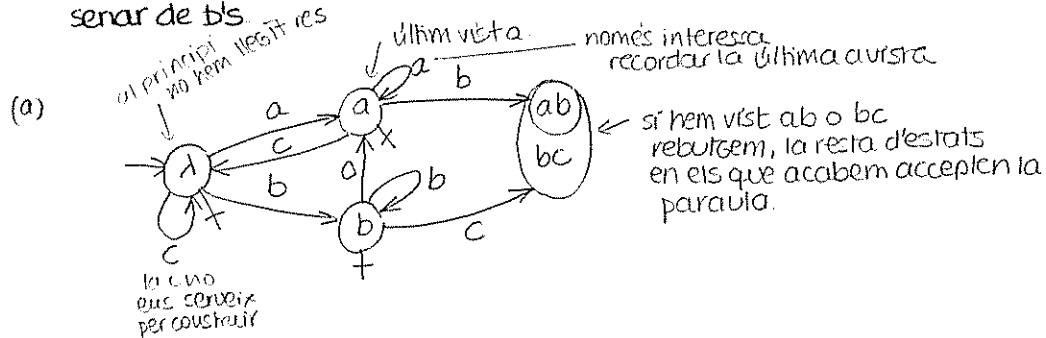 senar de b's.
al principi
no hem llegit res
últim vista
a
només interessa
recordar la última a vista
(a)
a
a
b
ab
bc
si hem vist ab o bc
rebutgem, la resta d'estats
en els que acabem accepten la
paraula.
c
+
λ
b
a
b
b
c
+
+
c
la c no
ens serveix
per construir